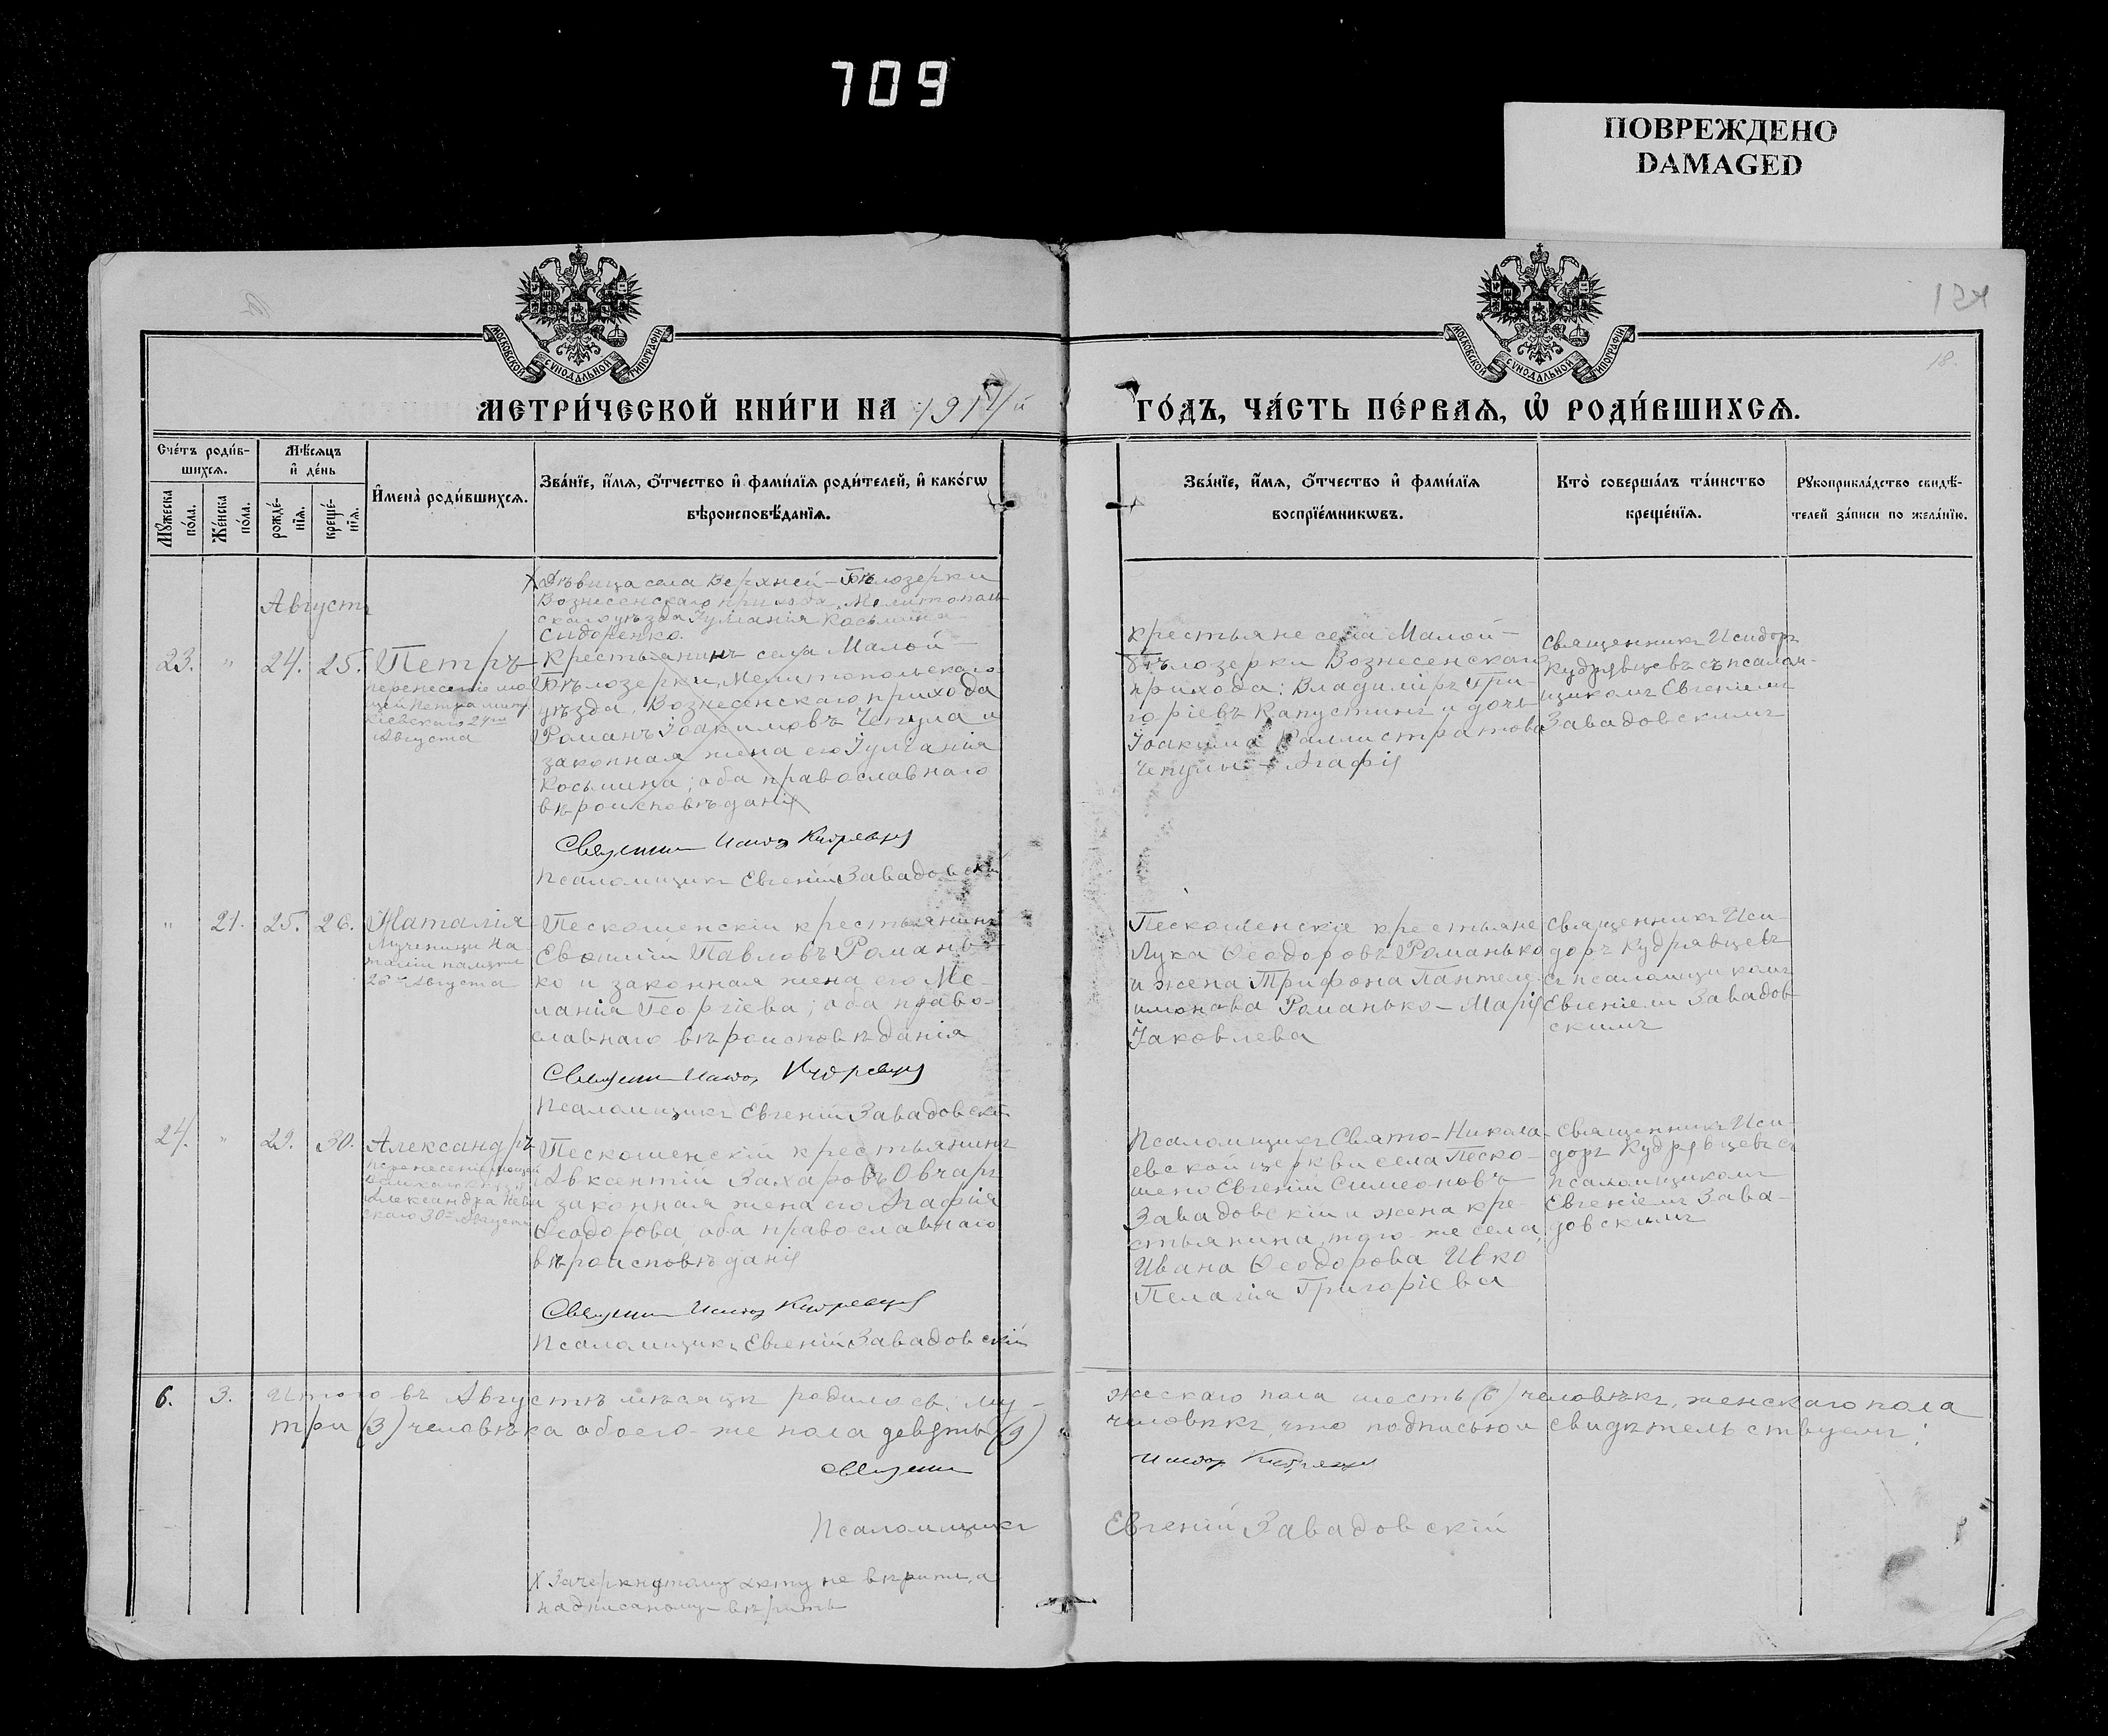 709
ПОВРЕЖДЕНО
DAMAGED
МОСКОВСКОЙ СѴНОДАЛЬНОЙ ТИПОГРАФІИ
МОСКОВСКОЙ СѴНОДАЛЬНОЙ ТИПОГРАФІИ
18.
МЕТРИ́ЧЕСКОЙ КНИ́ГИ НА 1917/й
ГО́ДЪ, ЧА́СТЬ ПЕ́РВАѦ, Ѡ҆ РОДИ́ВШИХСѦ.
Сче́тъ роди́в-
шихсѧ.
Мѣ́сѧцъ
и҆ де́нь
Мꙋ́жеска
по́ла.
Же́нска
по́ла.
рожде́-
нїѧ.
креще́-
нїѧ.
И҆мена̀ роди́вшихсѧ.
Зва́нїе, и҆́мѧ, ѻ҆́тчество и҆ фами́лїѧ роди́телей, и҆ како́гѡ
вѣроисповѣ́данїѧ.
Зва́нїе, и҆́мѧ, ѻ҆́тчество и҆ фами́лїѧ
воспрїе́мникѡвъ.
Кто̀ соверша́лъ та́инство
креще́нїѧ.
Рꙋкоприкла́дство свидѣ́-
телей за́писи по жела́нїю.
Августъ
Х Дѣвица села Верхней-Бѣлозерки
Вознесенскаго прихода, Мелитополь
скаго уѣзда Іуліанія Косьмина
Сидоренко.
23. " 24. 25. Петръ
перенесеніе мо
щей Петра митр
Кіевскаго 24го
Августа
Крестьянинъ села Малой
Бѣлозерки, Мелитопольскаго
уѣзда, Вознесенскаго прихода
Романъ Іоакимовъ Чепула и
законная жена его Іуліанія
Косьмина; оба православнаго
вѣроисповѣданія
Священникъ Исидоръ Кудрявцевъ
Псаломщикъ Евгеній Завадовскій
крестьяне села Малой-
Бѣлозерки Вознесенскаго
прихода: Владиміръ Гри-
горіевъ Капустинъ и дочь
Іоакима Каллистратова
Чепулы - Агафія
Священникъ Исидоръ
Кудрявцевъ съ псалом-
щикомъ Евгеніемъ
Завадовскимъ
" 21. 25. 26. Наталія
Мученицы На-
таліи память
26го Августа
Пескошенскій крестьянинъ
Евѳимій Павловъ Романь-
ко и законная жена его Ме-
ланія Георгіева; оба право-
славнаго вѣроисповѣданія
Священникъ Исидоръ Кудрявцевъ
Псаломщикъ Евгеній Завадовскій
Пескошенскіе крестьяне
Лука Ѳеодоровъ Романько
и жена Трифона Пантеле-
имонова Романько - Марія
Іаковлева
Священникъ Иси-
доръ Кудрявцевъ
съ псаломщикомъ
Евгеніемъ Завадов
скимъ
24. " 29. 30. Александръ
перенесеніе мощей
Великаго князя
Александра Нев
скаго 30го Августа
Пескошенскій крестьянинъ
Авксентій Захаровъ Овчаръ
и законная жена его Агафія
Ѳеодорова, оба православнаго
вѣроисповѣданія
Священникъ Исидоръ Кудрявцевъ
Псаломщикъ Евгеній Завадовскій
Псаломщикъ Свято-Никола-
евской церкви села Песко-
шено Евгеній Симеоновъ
Завадовскій и жена кре-
стьянина того же села
Ивана Ѳеодорова Ивко
Пелагія Григоріева
Священникъ Иси-
доръ Кудрявцевъ съ
псаломщикомъ
Евгеніемъ Зава-
довскимъ
6. 3. Итого въ Августѣ мѣсяцѣ родилось: му-
жескаго пола шесть (6) человѣкъ, женскаго пола
три (3) человѣка обоего же пола девять (9)
человѣкъ, что подписью и свидѣтельствуемъ:
Священникъ Исидоръ Кудрявцевъ
Псаломщикъ Евгеній Завадовскій
Х Зачеркнутому акту не вѣрить, а
надписаному вѣрить